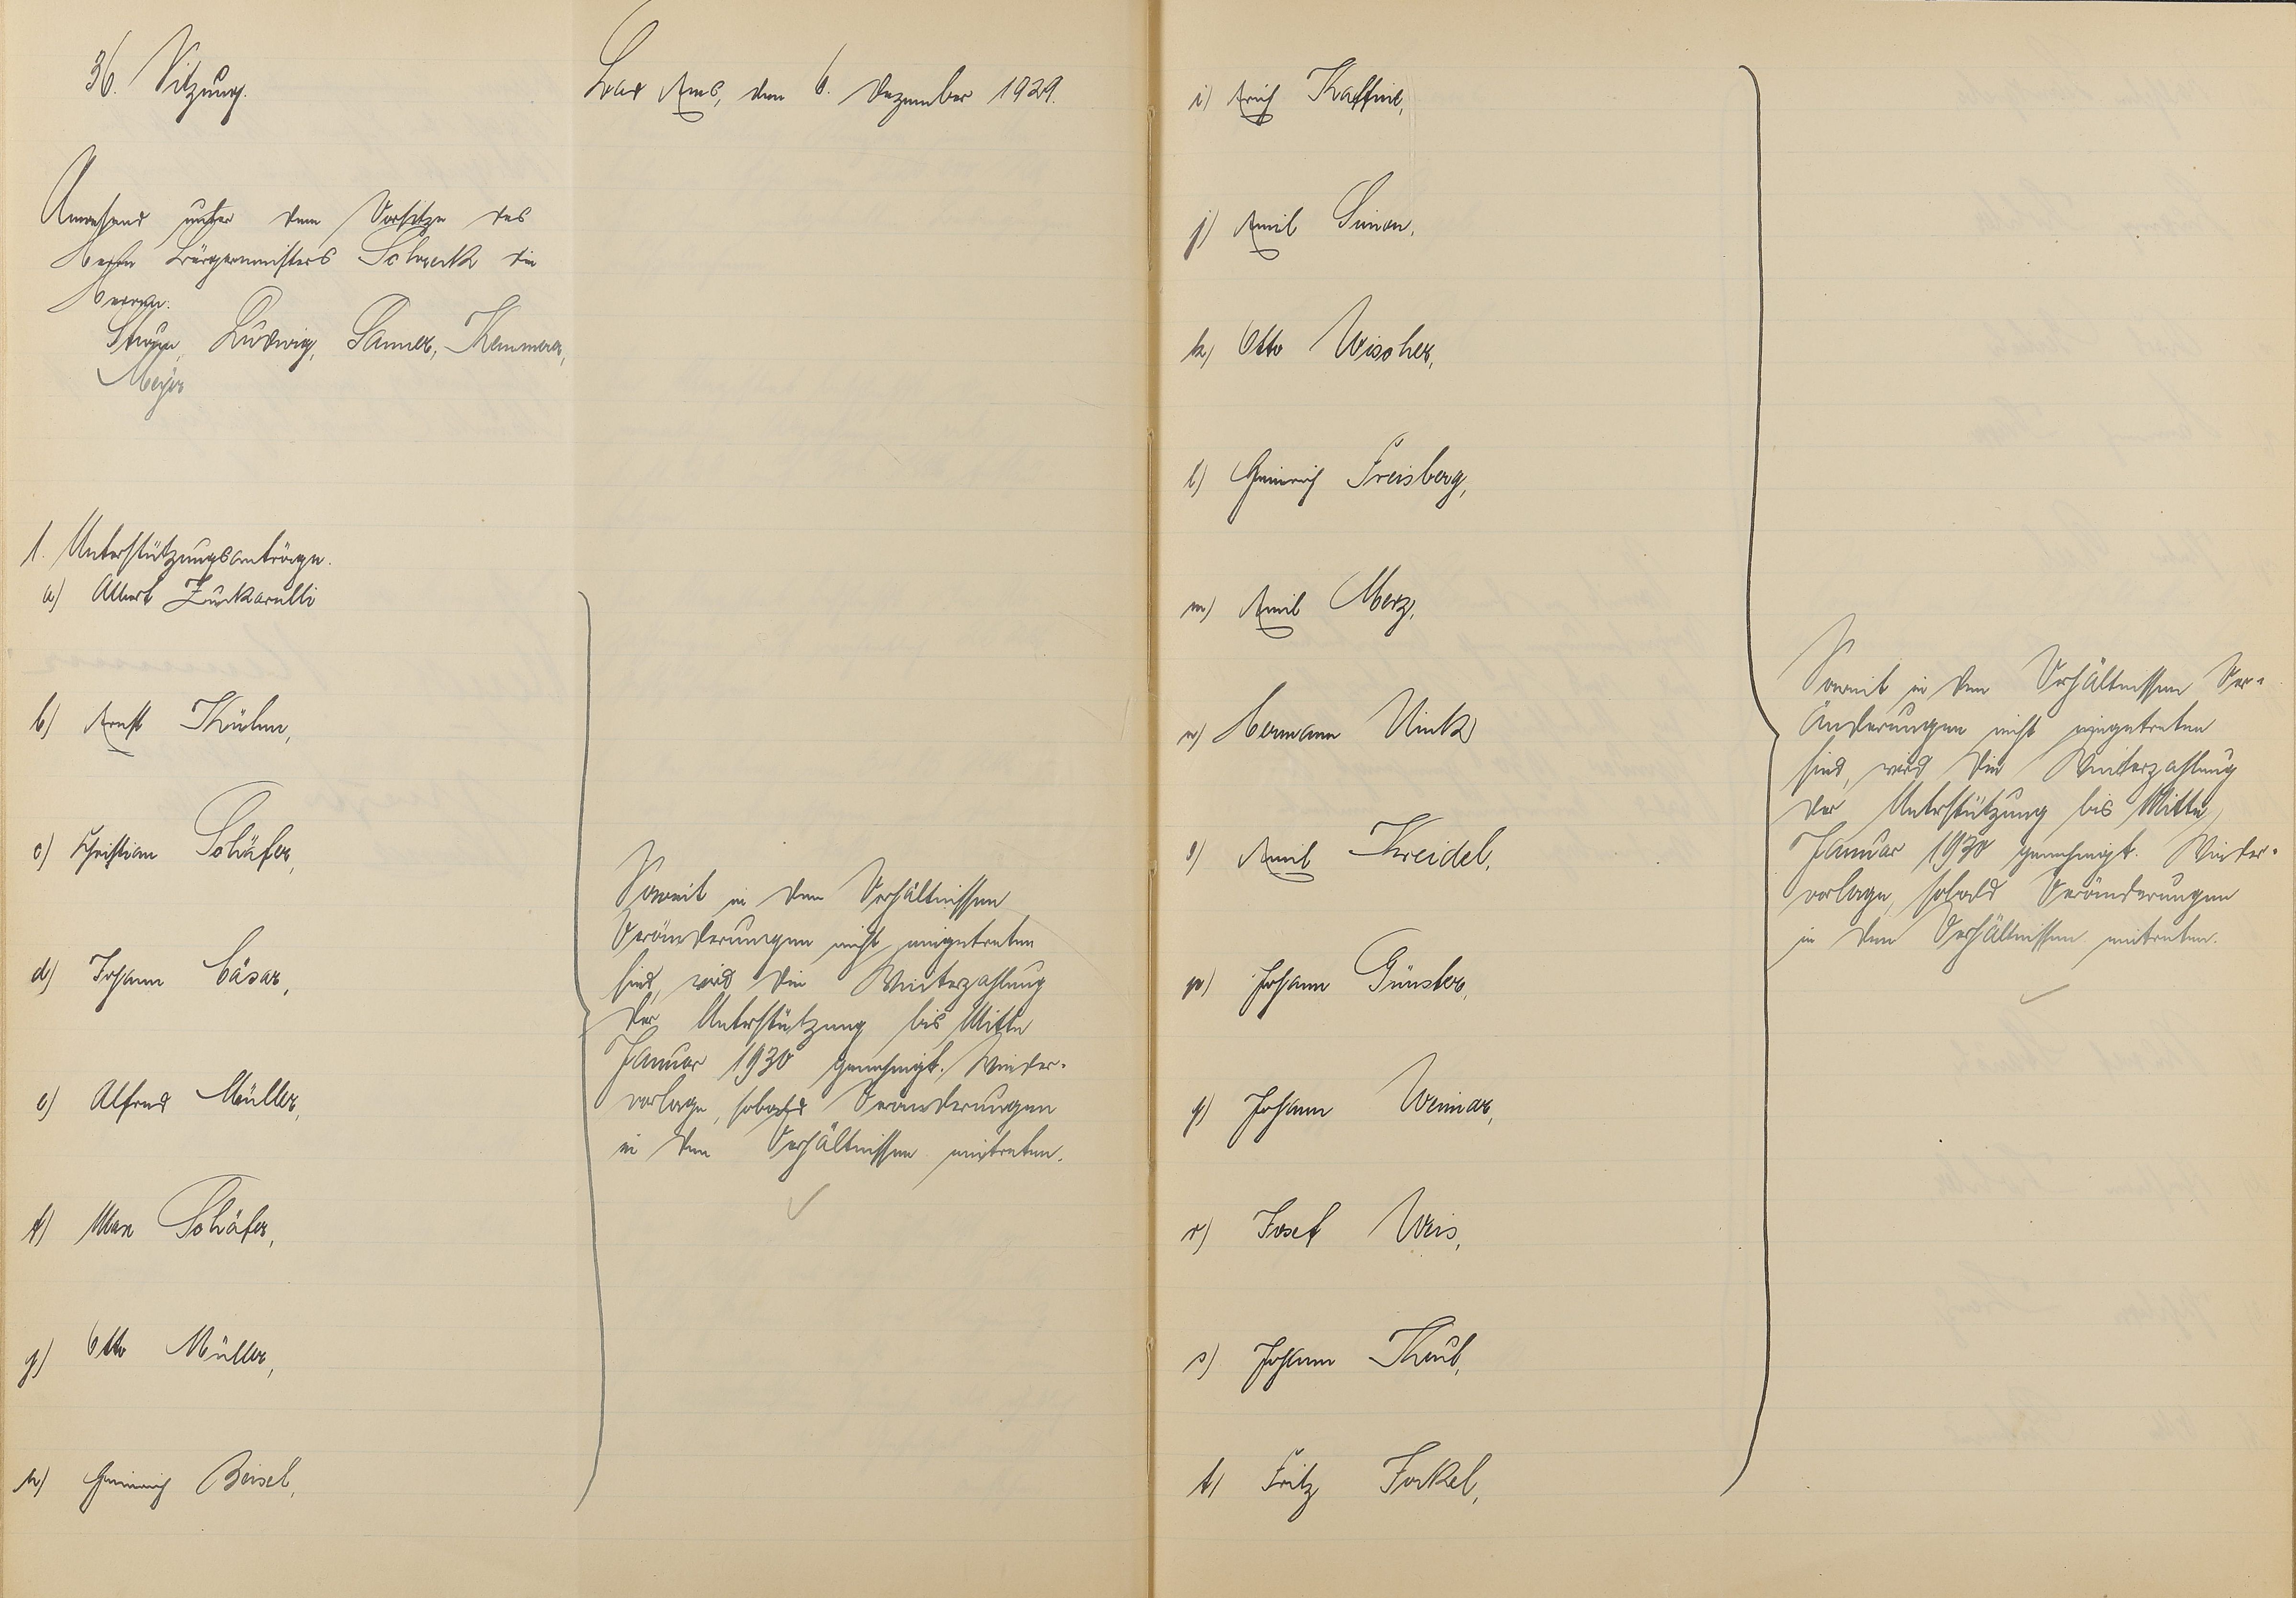 36. Sitzung.
Bad Ems, den 6. Dezember 1929.
Anwesend unter dem Vorsitze des
Herrn Bürgermeisters Schrenk die
Herren:
Ludwig, Sanner, Kemmerer,
Meyer
1. Unterstützungsanträge.
a) Albert Zuckarulli
b) Ernst Kühn,
c) Christian Schäfer,
d) Johann Cäsar,
e) Alfred Müller,
f) Max Schäfer,
g) Otto Müller,
h) Heinrich Beisel,
Soweit in den Verhältnissen
Veränderungen nicht eingetreten
sind, wird die Weiterzahlung
der Unterstützung bis Mitte
Januar 1930 genehmigt. Wieder-
vorlage, sobald Veränderungen
in den Verhältnissen eintreten.
i) Erich Kaffine,
j) Emil Simon,
k) Otto Wischer,
l) Heinrich Freisberg,
m) Emil Merz,
n) Hermann Vink
o) Emil Kreidel,
p) Johann Günster,
q) Johann Weimar,
r) Josef Weis,
s) Johann Kaub,
t) Fritz Fackel,
Soweit in den Verhältnissen Ver-
änderungen nicht eingetreten
sind, wird die Weiterzahlung
der Unterstützung bis Mitte
Januar 1930 genehmigt. Wieder-
vorlage, sobald Veränderungen
in den Verhältnissen eintreten.